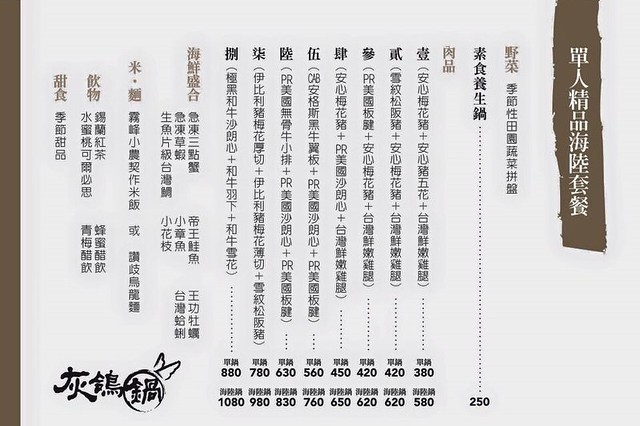 單人精品海陸套餐
野菜 季節性田園蔬菜拼盤
素食養生鍋 250
肉品
壹（安心梅花豬＋安心豬五花＋台灣鮮嫩雞腿） 單鍋 380 海陸鍋 580
貳（雪紋松阪豬＋安心梅花豬＋台灣鮮嫩雞腿） 單鍋 420 海陸鍋 620
參（PR美國板腱＋安心梅花豬＋台灣鮮嫩雞腿） 單鍋 420 海陸鍋 620
肆（安心梅花豬＋PR美國沙朗心＋台灣鮮嫩雞腿） 單鍋 450 海陸鍋 650
伍（CAB安格斯黑牛翼板＋PR美國沙朗心＋PR美國板腱） 單鍋 560 海陸鍋 760
陸（PR美國無骨牛小排＋PR美國沙朗心＋PR美國板腱） 單鍋 630 海陸鍋 830
柒（伊比利豬梅花厚切＋伊比利豬梅花薄切＋雪紋松阪豬） 單鍋 780 海陸鍋 980
捌（極黑和牛沙朗心＋和牛羽下＋和牛雪花） 單鍋 880 海陸鍋 1080
海鮮盛合 急凍三點蟹 帝王鮭魚 王功牡蠣
急凍草蝦 小章魚 台灣蛤蜊
生魚片級台灣鯛 小花枝
米・麵 霧峰小農契作米飯 或 讚歧烏龍麵
飲物 錫蘭紅茶 蜂蜜醋飲
水蜜桃可爾必思 青梅醋飲
甜食 季節甜品
灰鴿鍋